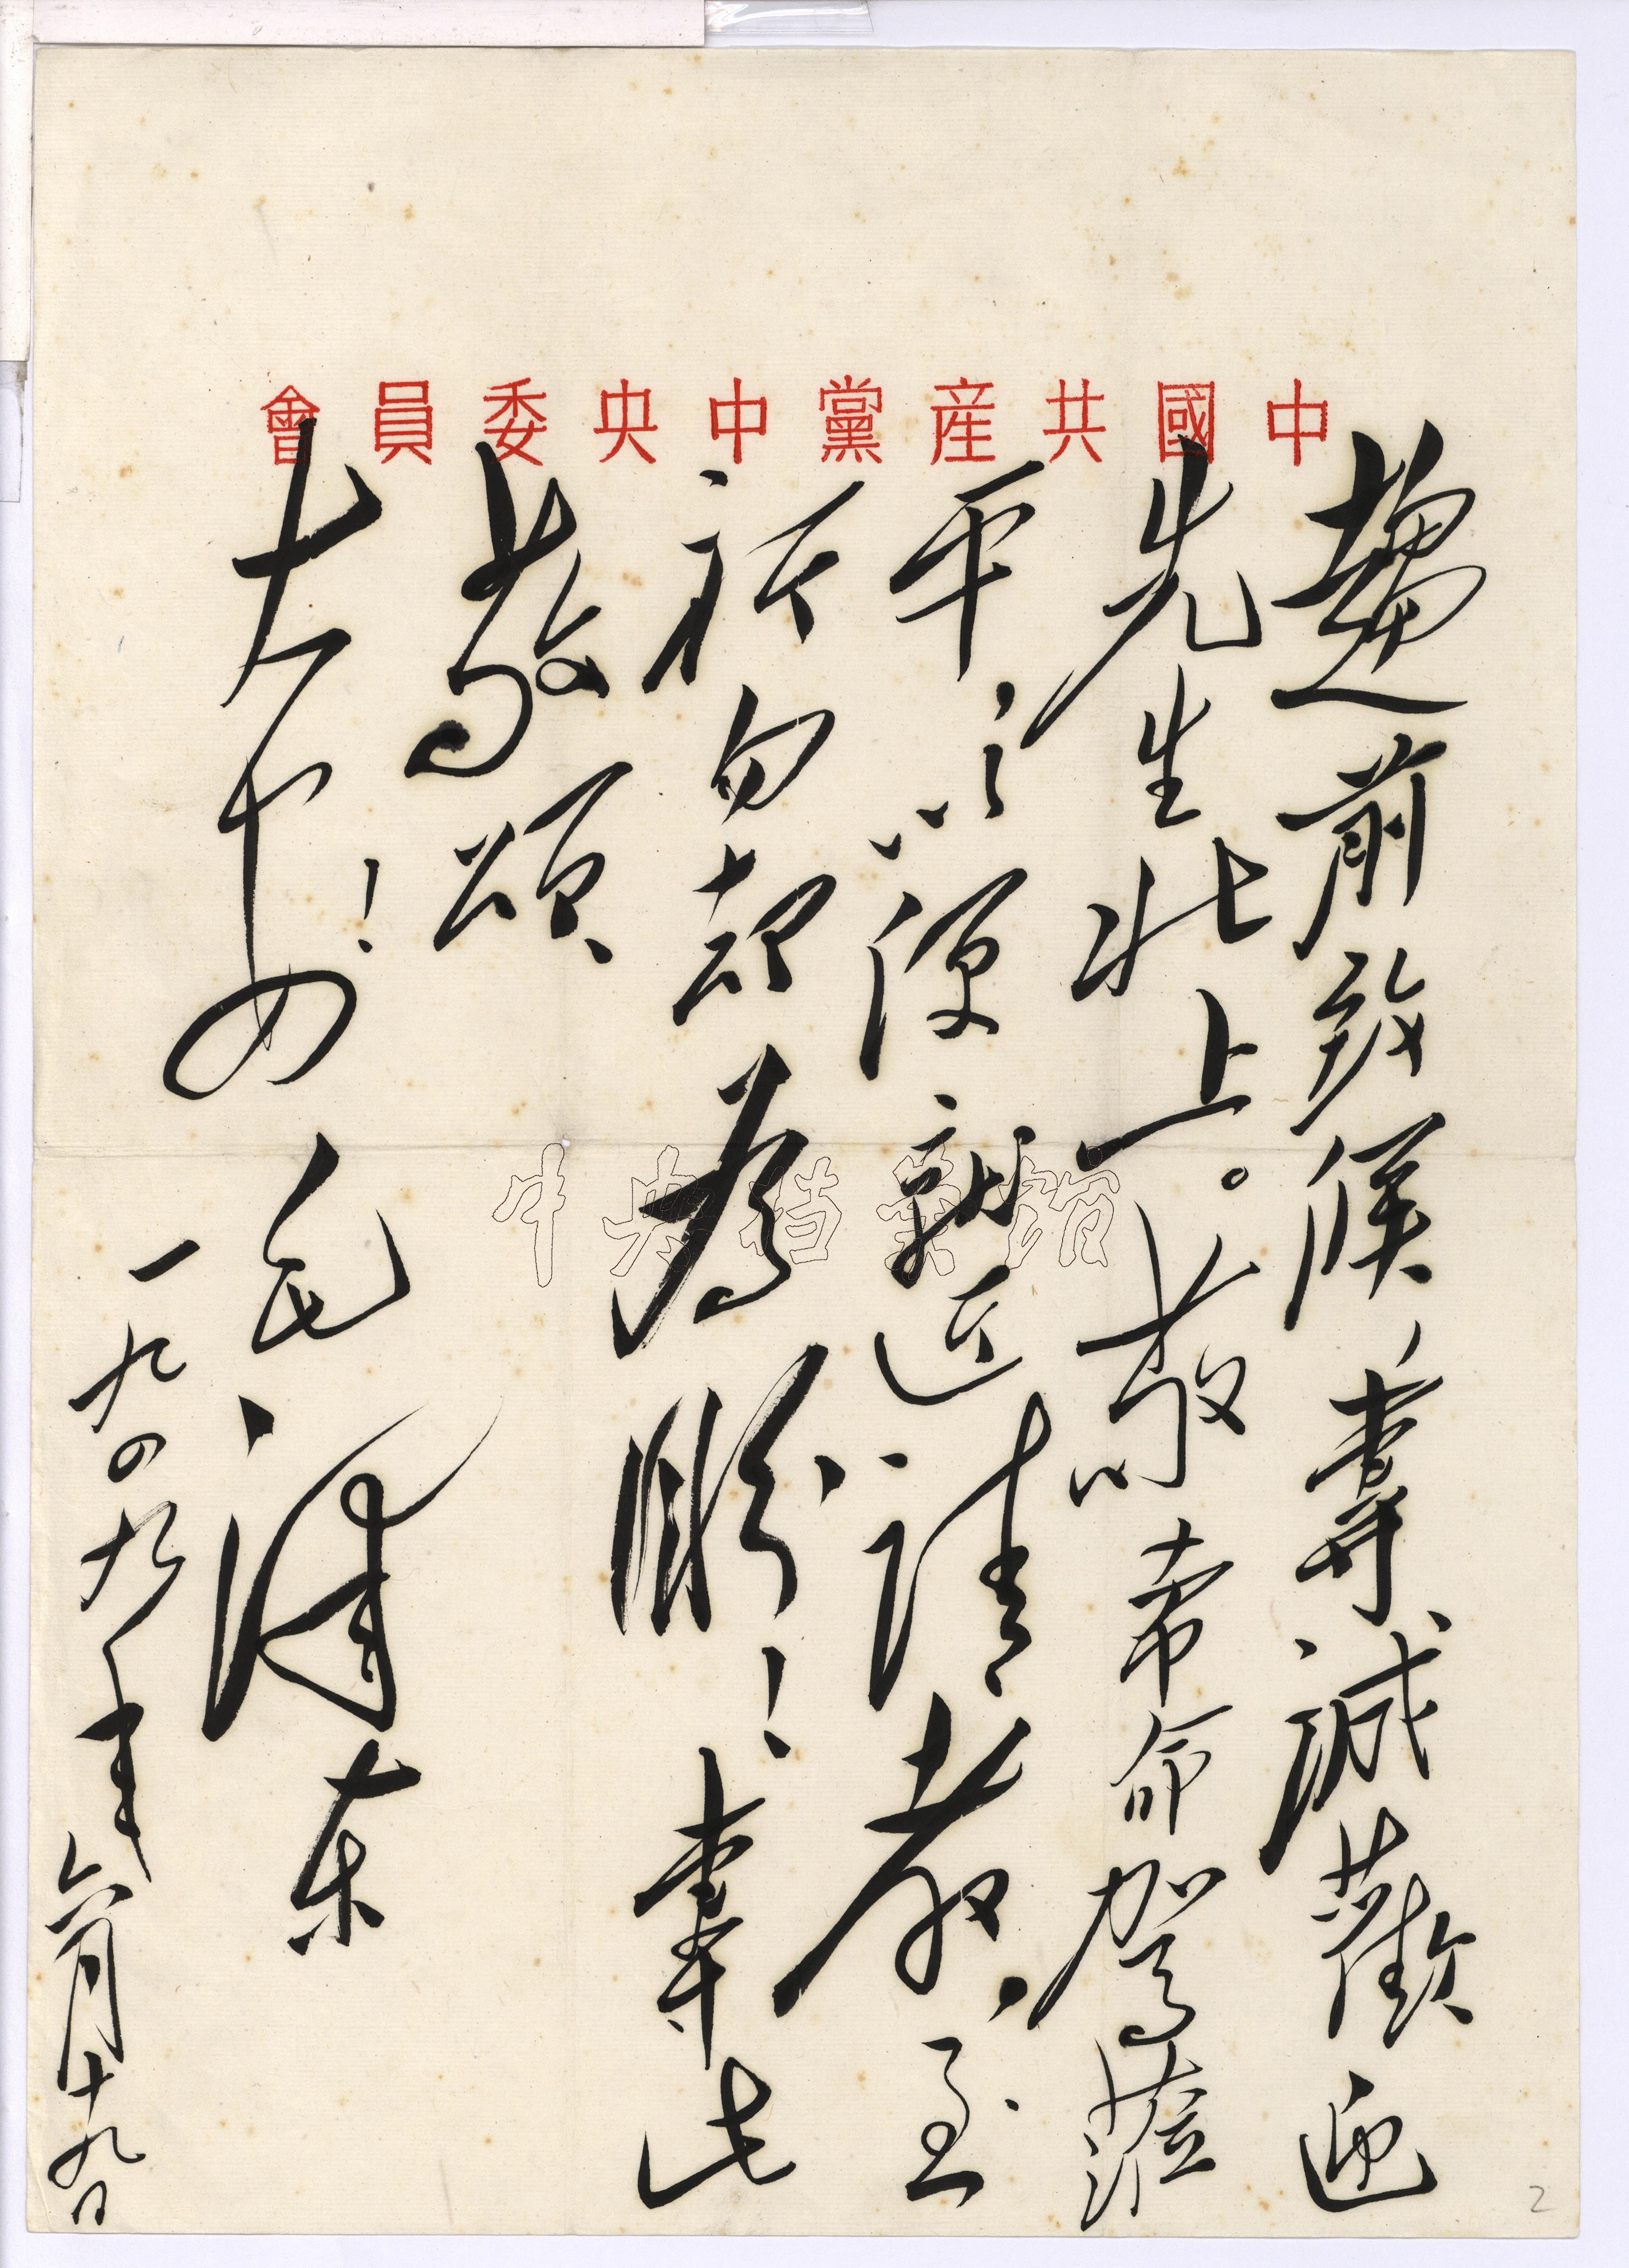 中國共産黨中央委員會
趨前致候，專誠歡迎
先生北上。敬希命駕蒞
平，以便就近請教，至
祈勿却爲盼！專此
敬頌
大安！
毛澤东
一九四九年六月十九日
中央档案馆
2